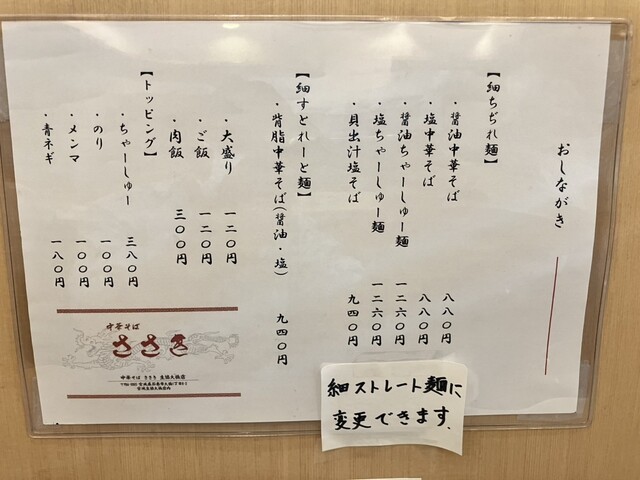 おしながき
【細ちぢれ麺】
・醤油中華そば 八八〇円
・塩中華そば 八八〇円
・醤油ちゃーしゅー麺 一二六〇円
・塩ちゃーしゅー麺 一二六〇円
・貝出汁塩そば 九四〇円
【細すとれーと麺】
・背脂中華そば(醤油・塩) 九四〇円
・大盛り 一二〇円
・ご飯 一二〇円
・肉飯 三〇〇円
【トッピング】
・ちゃーしゅー 三八〇円
・のり 一〇〇円
・メンマ 一〇〇円
・青ネギ 一八〇円
中華そば
ささき
細ストレート麺に
変更できます.